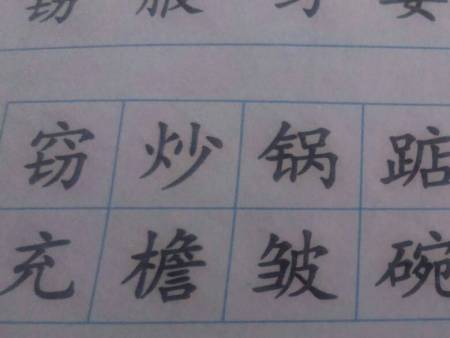 服
窃 炒 锅 踮
充 檐 皱 碗